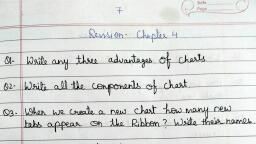 7
Date
Page
Revision - Chapter 4
Q1- Write any three advantages of charts
Q2- Write all the components of chart.
Q3- When we create a new chart how many new
tabs appear on the Ribbon? Write their names.